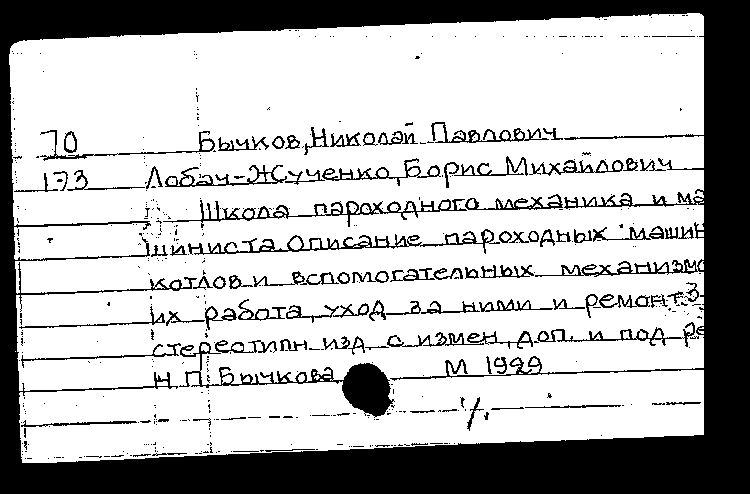 70 Бычков, Николай Павлович
173 Лобач-Жученко, Борис Михайлович
Школа пароходного механика и ма
шиниста. Описание пароходных машин
котлов и вспомогательных механизмо
их работа, уход за ними и ремонт. 3-
стереотипн. изд. с измен., доп. и под ре
Н. П. Бычкова М 1929